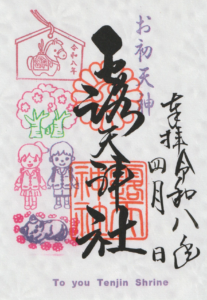 奉拝 令和八年
四月 日
お初天神
露天神社
令和八年
To you Tenjin Shrine